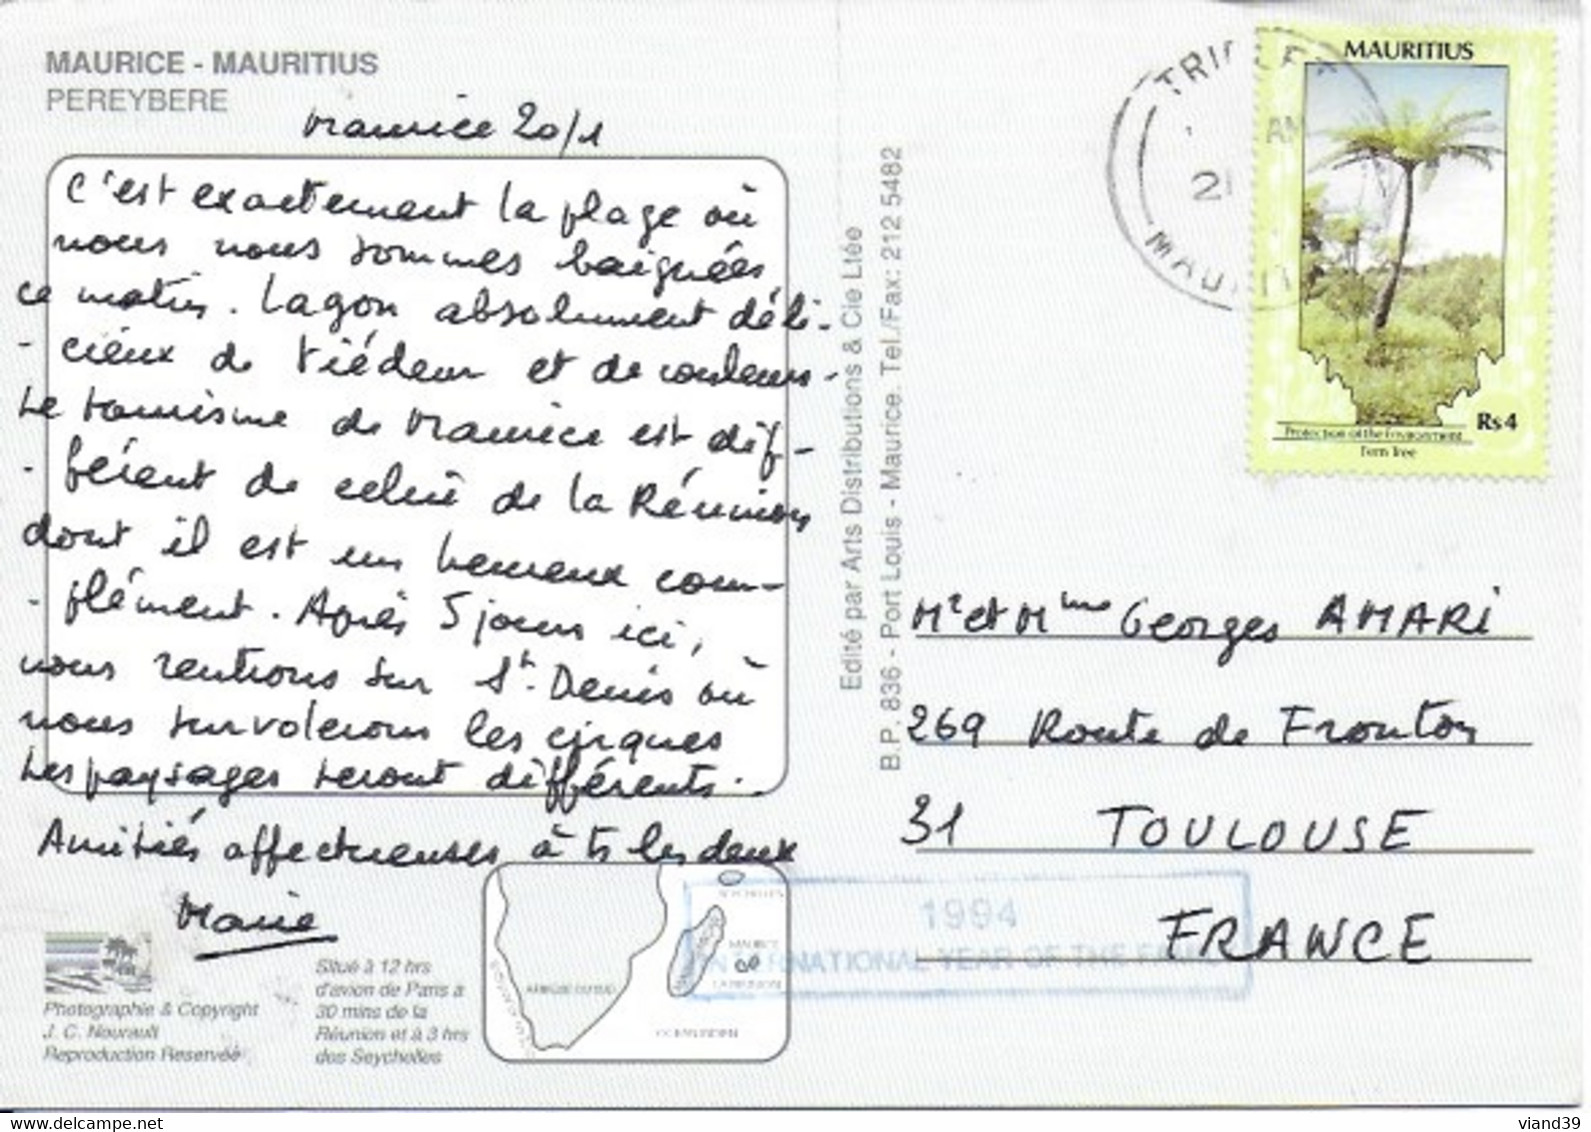 MAURICE - MAURITIUS
PEREYBERE
Maurice 20/1
C'est exactement la plage où
nous nous sommes baignées
ce matin. Lagon absolument déli-
- cieux de tiédeur et de couleurs.
Le tourisme de Maurice est dif-
- férent de celui de la Réunion
dont il est un heureux com-
- plément. Après 5 jours ici,
nous rentrons sur St. Denis où
nous survolerons les cirques
Les paysages seront différents.
Amitiés affectueuses à ts les deux
Marie
Photographie & Copyright
J. C. Nourault
Reproduction Reservéé
Situé à 12 hrs
d'avion de Paris à
30 mins de la
Réunion et à 3 hrs
des Seychelles
SEYCHELLES
MAURICE
LA REUNION
AFRIQUE DU SUD
OCEAN INDIEN
Edité par Arts Distributions & Cie Ltée
B.P. 836 - Port Louis - Maurice. Tel./Fax: 212 5482
21
MAURITIUS
Rs 4
Protection of the Environment
Fern Tree
Mr et Mme Georges AMARI
269 Route de Fronton
31 TOULOUSE
FRANCE
1994
INTERNATIONAL YEAR OF THE FAMILY
viand39